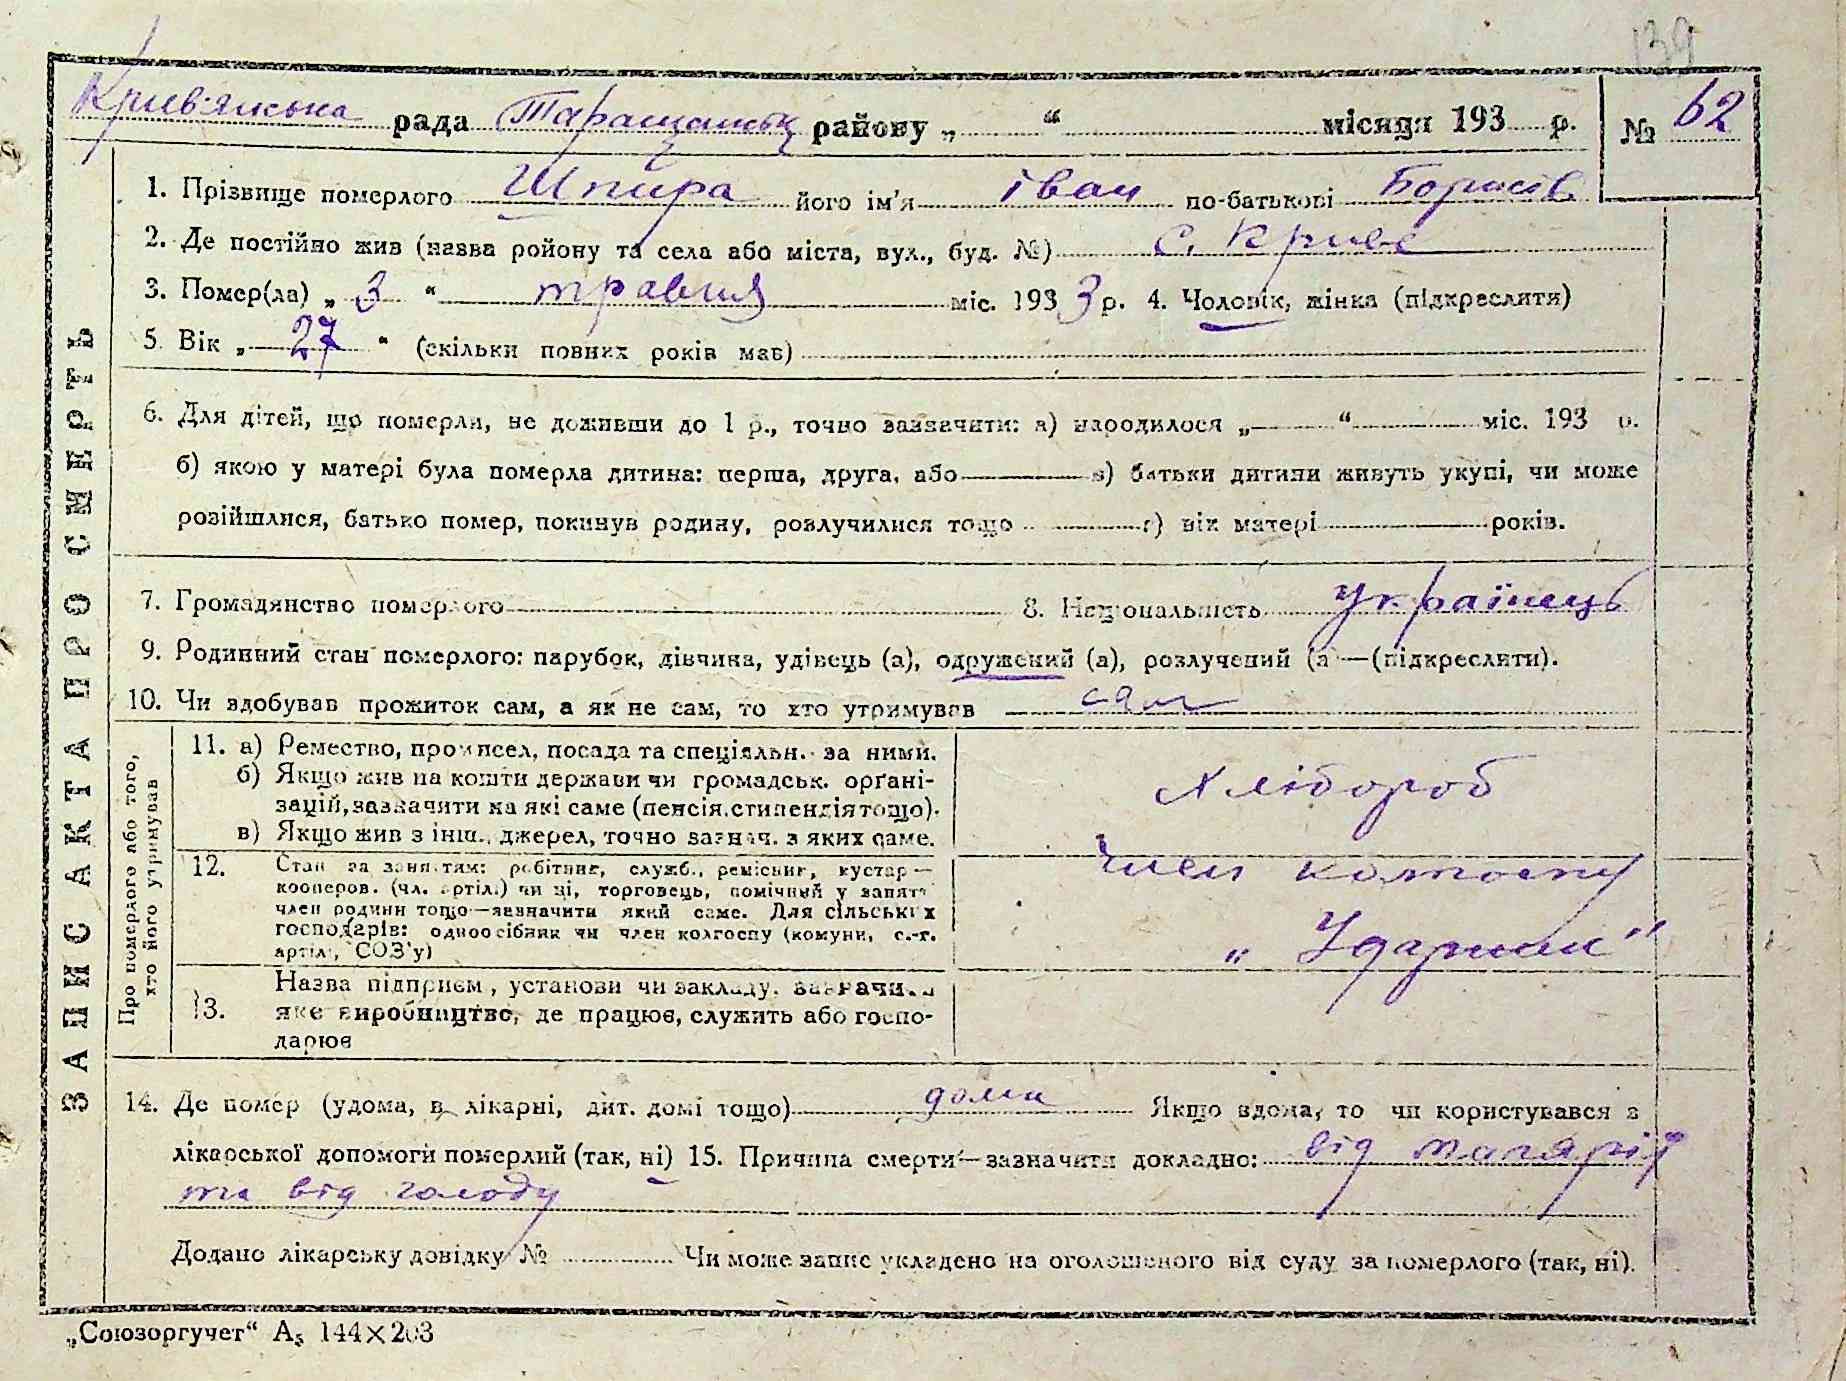 139
Крив'янська рада Таращанськ району „ “ місяця 193 р. № 62
ЗАПИС АКТА ПРО СМЕРТЬ
1. Прізвище померлого Шпира його ім'я іван по-батькові Борисів
2. Де постійно жив (назва ройону та села або міста, вул., буд. №) с. Криве
3. Помер(ла) „ 3 “ травня міс. 193 3 р. 4. Чоловік, жінка (підкреслити)
5. Вік „ 27 “ (скільки повних років мав)
6. Для дітей, що померли, не доживши до 1 р., точно зазначити: а) народилося „ “ міс. 193 р.
б) якою у матері була померла дитина: перша, друга, або в) батьки дитини живуть укупі, чи може
розійшлися, батько помер, покинув родину, розлучилися тощо г) вік матері років.
7. Громадянство померлого 8. Національність Українець
9. Родинний стан померлого: парубок, дівчина, удівець (а), одружений (а), розлучений (а —(підкреслити).
10. Чи здобував прожиток сам, а як не сам, то хто утримував сам
Про померлого або того,
хто його утримував
11. а) Ремество, промисел, посада та спеціяльн. за ними.
б) Якщо жив на кошти держави чи громадськ. організацій, зазначити на які саме (пенсія, стипендія тощо).
в) Якщо жив з інш., джерел, точно зазнач. з яких саме.
Хлібороб
12. Стан за заняттям: робітник, служб., ремісник, кустар—
кооперов. (чл. артіл.) чи ні, торговець, помічний у занятт
член родини тощо—зазначити який саме. Для сільських
господарів: одноосібник чи член колгоспу (комуни, с.-г.
артілі, СОЗ'у)
член колгоспу
„ Ударник "
13. Назва підприєм., установи чи закладу, зазначи.
яке виробництво, де працює, служить або госпо-
дарює
14. Де помер (удома, в лікарні, дит. домі тощо) дома Якщо вдома, то чи користувався з
лікарської допомоги померлий (так, ні) 15. Причина смерти—зазначити докладно: від малярії
та від голоду
Додано лікарську довідку № Чи може запис укладено на оголошеного від суду за померлого (так, ні).
„Союзоргучет“ А₅ 144×203